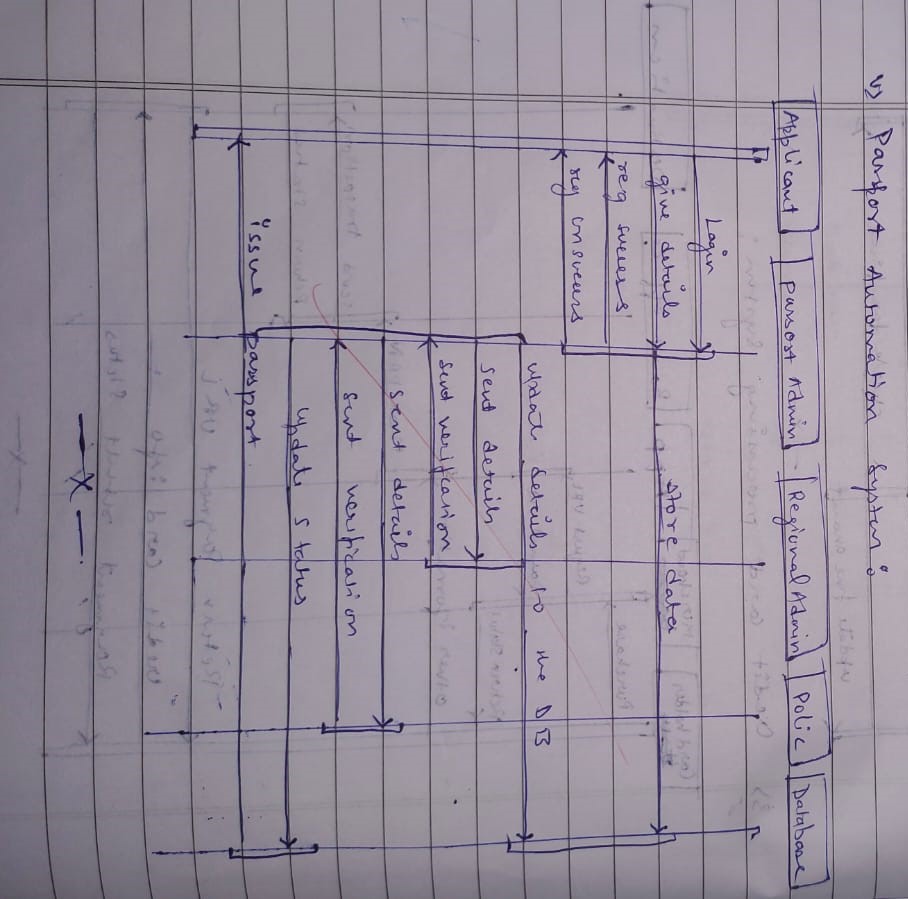 v) Passport Automation System:
Applicant
passost Admin
Regional Admin
Polic
Database
Login
give details
store data
reg success
reg unsuccess
updat details to the DB
sent details
send verification
sent details
sent verification
update status
issue passport
—x—